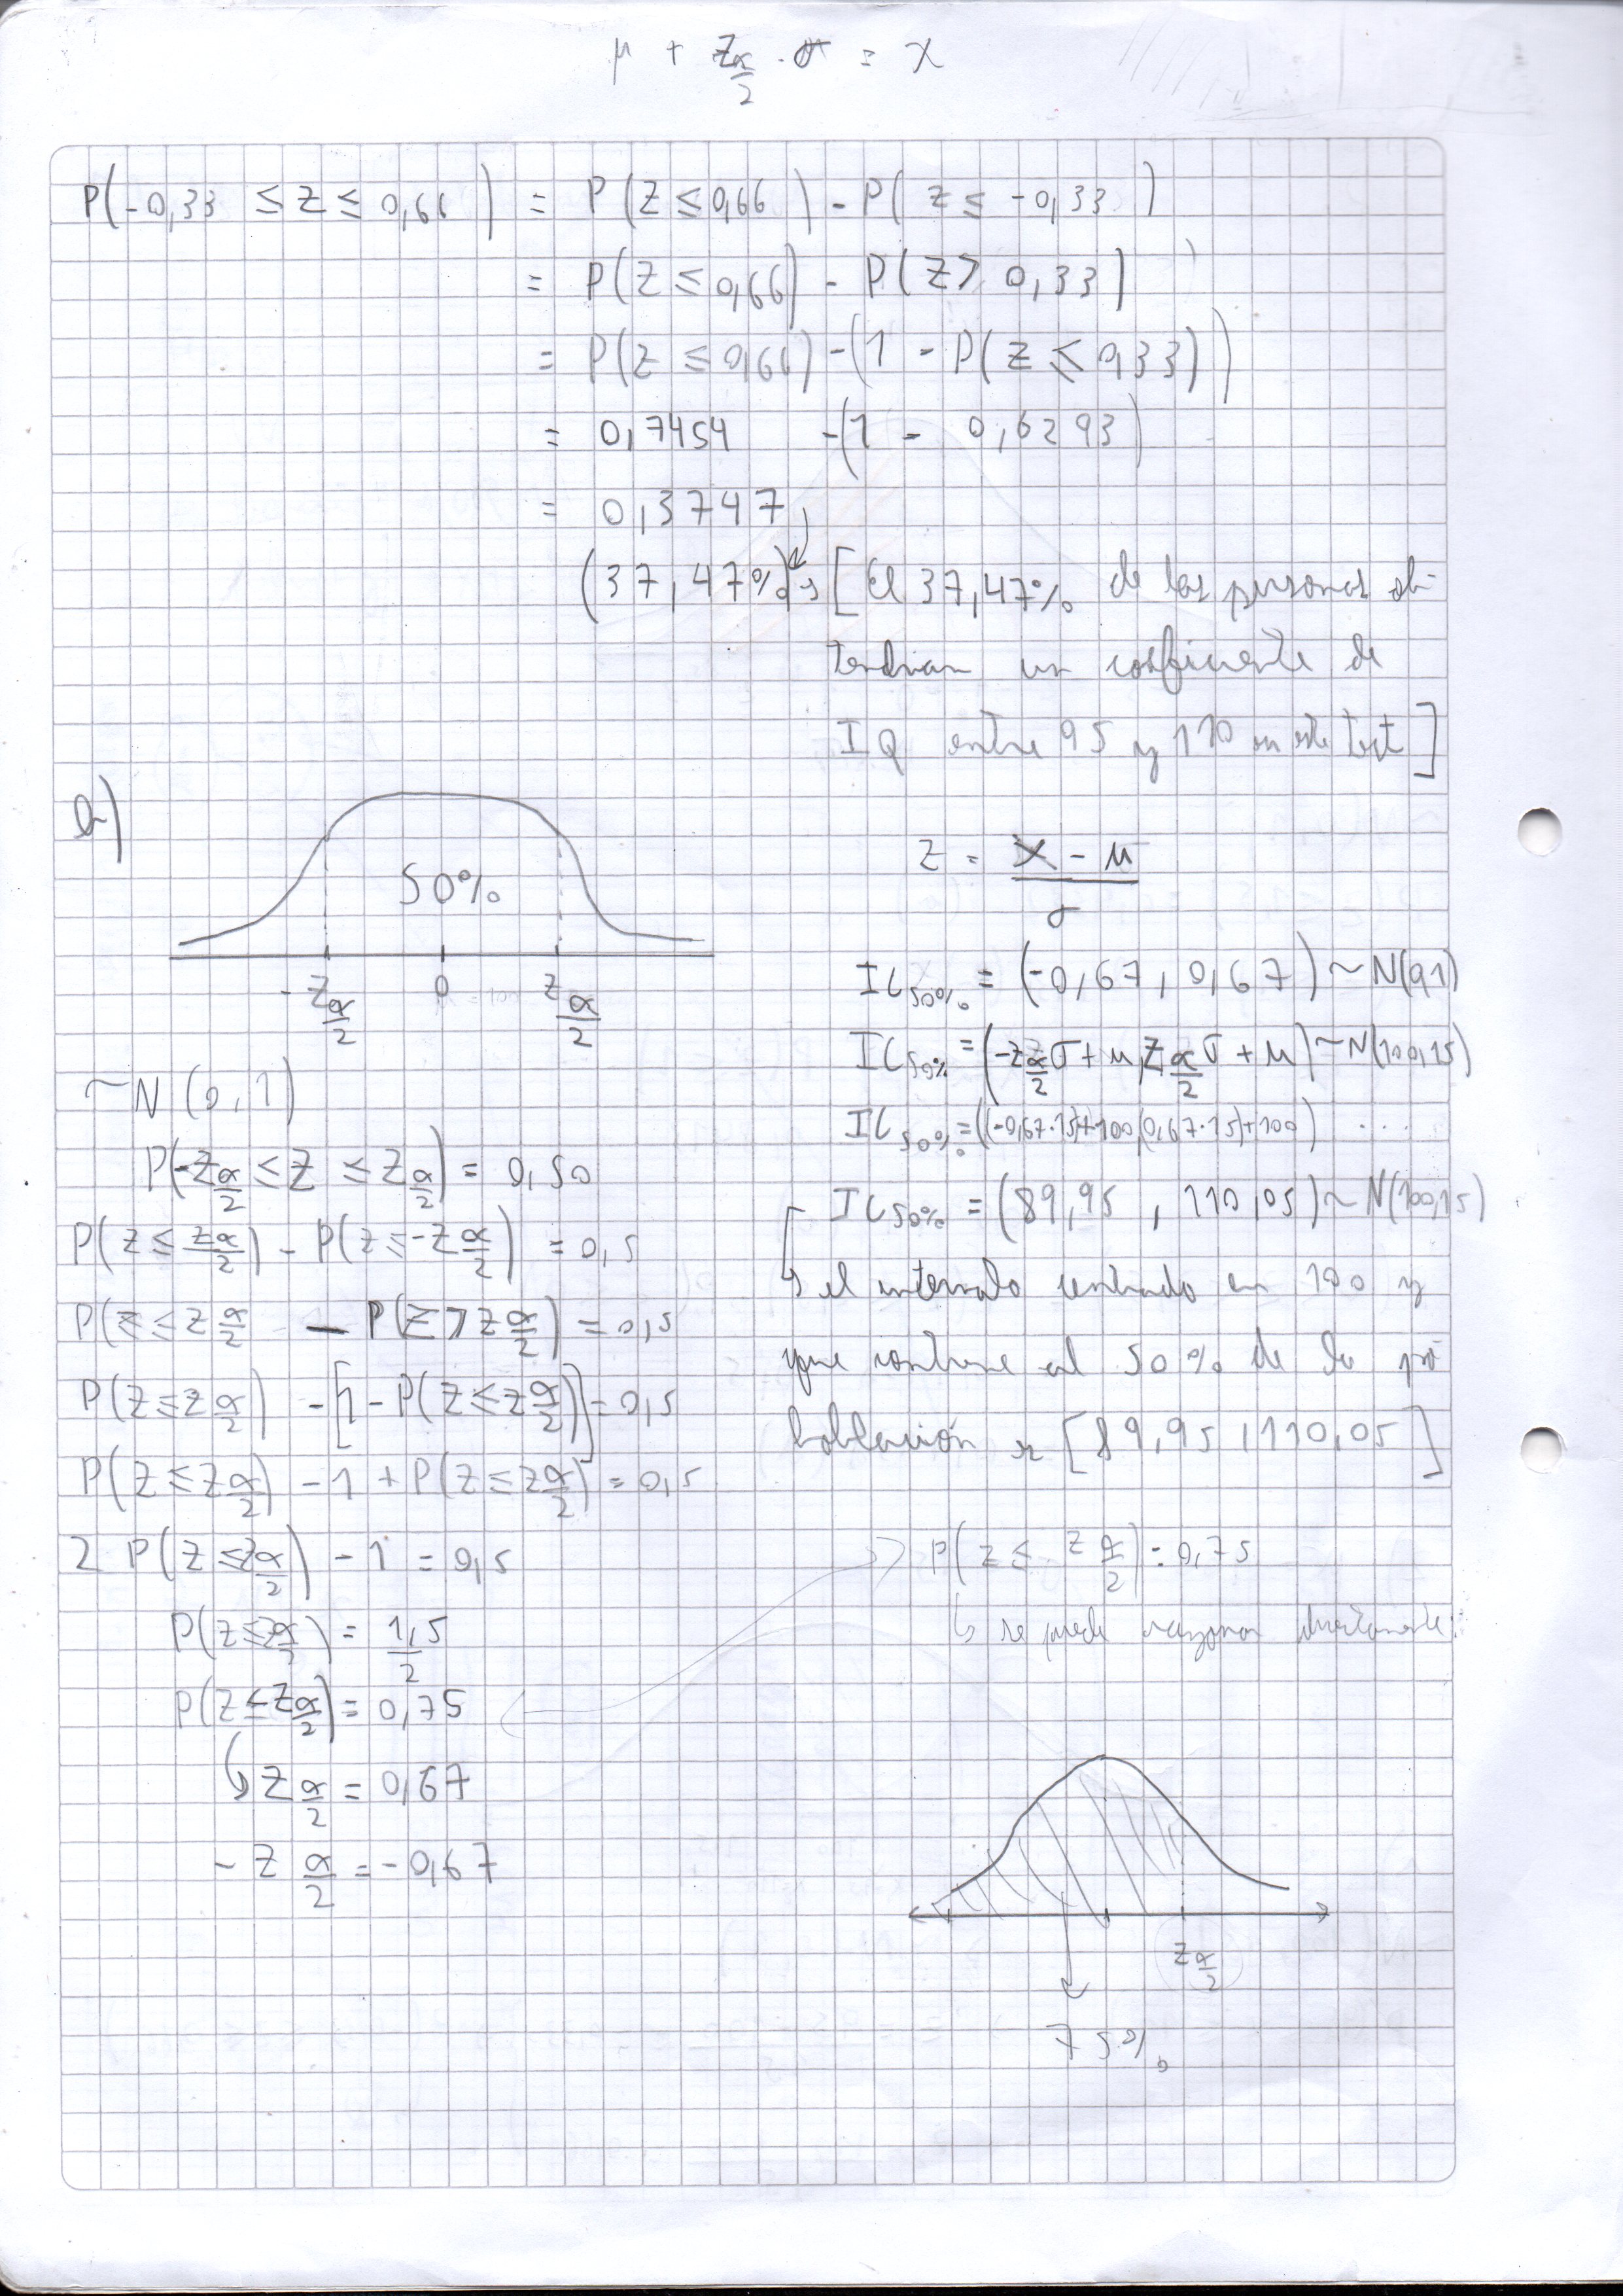 μ + Zα/2 · σ = X
P(-0,33 ≤ Z ≤ 0,66) = P(Z ≤ 0,66) - P(Z ≤ -0,33)
= P(Z ≤ 0,66) - P(Z > 0,33)
= P(Z ≤ 0,66) - (1 - P(Z ≤ 0,33))
= 0,7454 - (1 - 0,6293)
= 0,3747
(37,47%) → [El 37,47% de las personas ob-
tendrian un coeficiente de
IQ entre 95 y 110 en este test]
b)
50%
-Zα/2 0 Zα/2
~N(0,1)
P(-Zα/2 ≤ Z ≤ Zα/2) = 0,50
P(Z ≤ Zα/2) - P(Z ≤ -Zα/2) = 0,5
P(Z ≤ Zα/2 - P(Z > Zα/2) = 0,5
P(Z ≤ Zα/2) - [1 - P(Z ≤ Zα/2)] = 0,5
P(Z ≤ Zα/2) - 1 + P(Z ≤ Zα/2) = 0,5
2 P(Z ≤ Zα/2) - 1 = 0,5
P(Z ≤ Zα/2) = 1,5/2
P(Z ≤ Zα/2) = 0,75
↳ Zα/2 = 0,67
-Zα/2 = -0,67
Z = X - μ / σ
IC50% = (-0,67, 0,67) ~ N(0,1)
IC50% = (-Zα/2 σ + μ, Zα/2 σ + μ) ~ N(100,15)
IC50% = ((-0,67·15)+100, (0,67·15)+100) ...
IC50% = (89,95, 110,05) ~ N(100,15)
↳ el intervalo centrado en 100 y
que contiene al 50% de la po
boblación es [89,95, 110,05]
P(Z ≤ Zα/2) = 0,75
↳ se puede razonar directamente:
Zα/2
75%